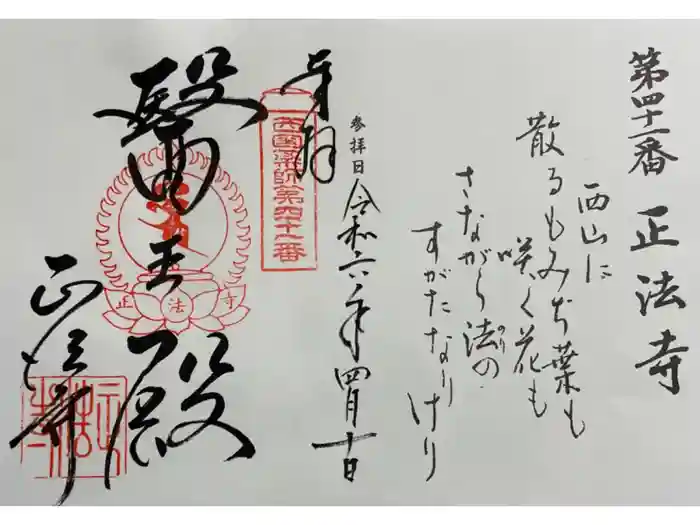 第四十一番 正法寺
西山に
散るもみぢ葉も
咲く花も
さながら法の
のり
すがたなり
けり
奉拝
参拝日 令和六年四月十日
西国薬師第四十一番
醫王殿
正法寺
正法寺